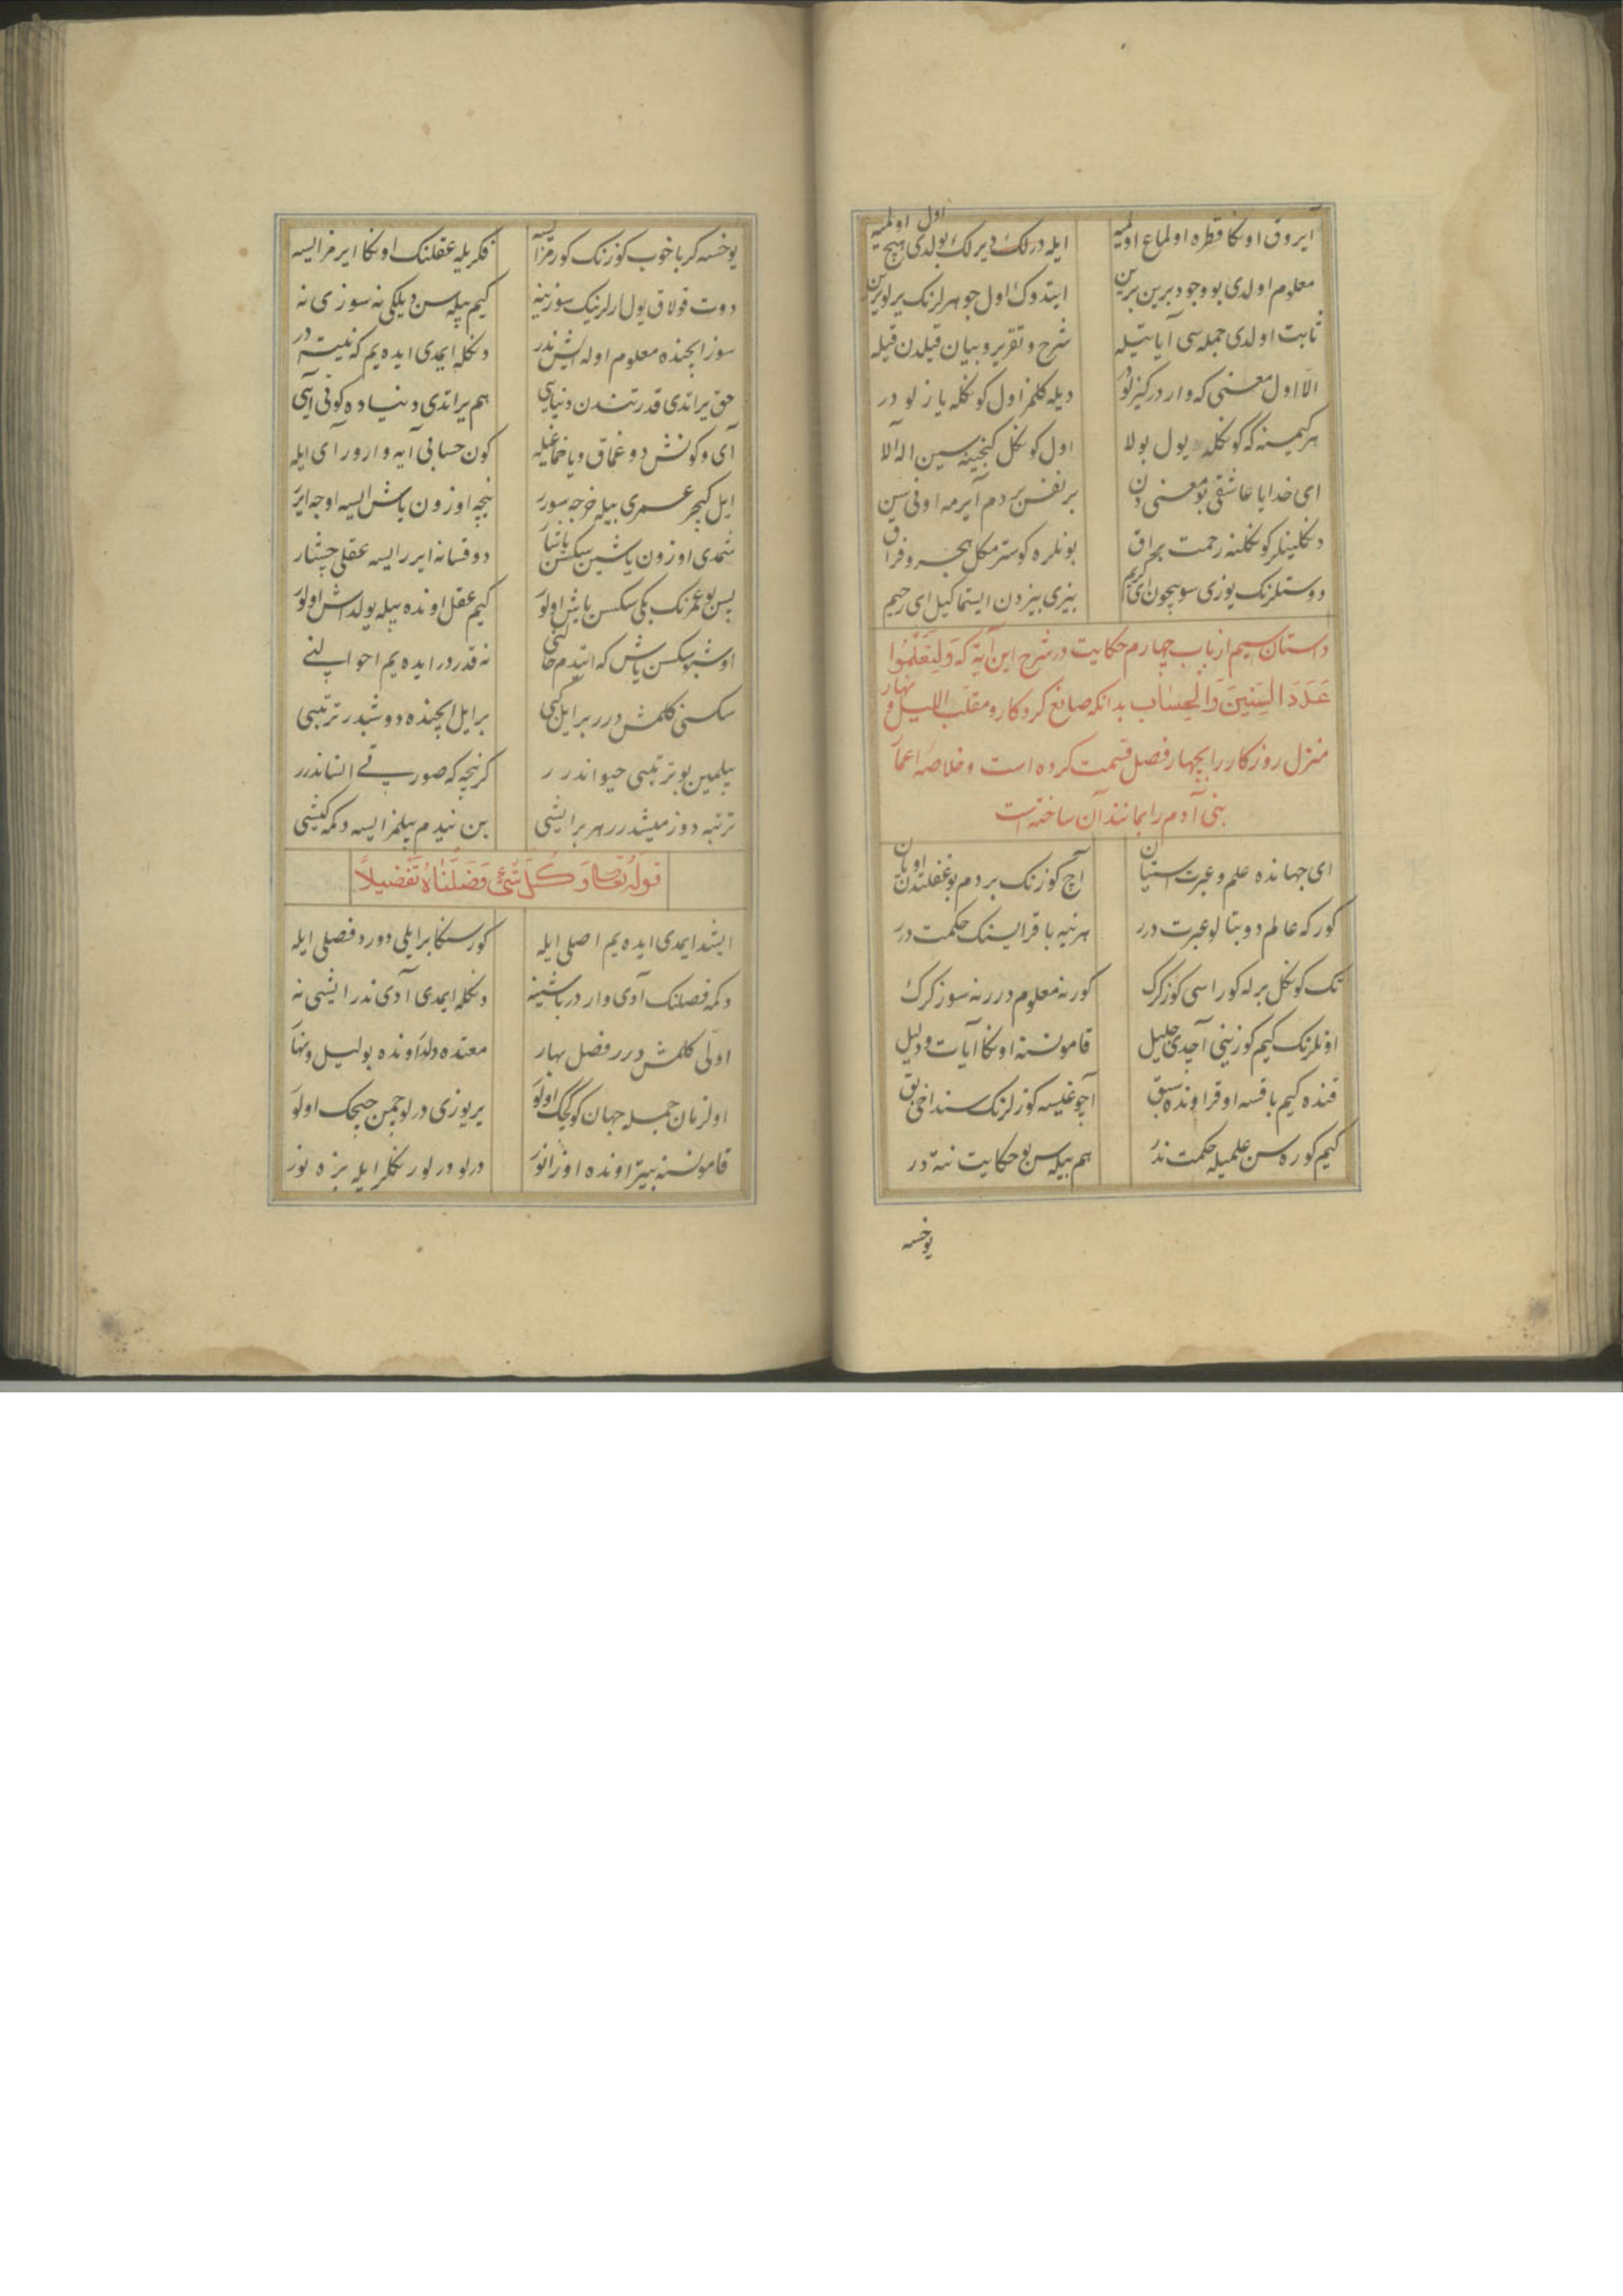 ایروق اوکا قطره اولماغ اولمیه ایله درلک دیرلک بولدی هیچ اول اولمیه
معلوم اولدی بو وجود برین برین ایتدوک اول جوهرلرنک یرلو یرین
ثابت اولدی جمله سی آیاتیله شرح و تقریر و بیان قیلدن قیله
الا اول معنی که وار در کیزلودر دیله کلمز اول کوکله یازلو در
هر کیمسنه که کوکلده یول بولا اول کوکل کنجینه سین اله آلا
ای خدایا عاشقی بو معنی دن بر نفس بر دم آیرمه اونی سن
دکلینلر کوکلنه رحمت براق بونلره کوسترمکل هجر و فراق
دوستلرنک یوزی سویچون ای کریم بیزی بیزدن ایتماکیل ای رحیم
داستان سیم از باب چهارم حکایت در شرح این آیة که وَلِتَعْلَمُوا
عَدَدَ السِّنِینَ وَالْحِسَابَ بدانکه صانع کردکار و مقلب اللیل و نهار
منزل روزکار را بچهار فصل قسمت کرده است و خلاصه اعمار
بنی آدم را بمانند آن ساخته است
ای جهانده علم و عبرت استیان آچ کوزنک بر دم بو غفلتدن اویان
کور که عالم دوبتا لو عبرت درر هر نیه باقراسنک حکمت درر
تک کوکل برله کوراسی کوز کرک کور نه معلوم درر نه سوز کرک
اونلرنک کیم کوزینی آچدی جلیل قامو نسنه اوکا آیات و دلیل
قنده کیم باقسه اوقر اونده سبق آچوغیسه کوزلرنک سنداخی بق
کیم کوره سن علمیله حکمت ندر هم بیله سن بو حکایت نته در
یوخسه
یوخسه کر باخوب کوزنک کورمزایسه فکریله عقلنک اوکا ایرمزایسه
دوت قولاق یول ارلرینک سوزینه کیم بیله سن دیلکی نه سوزی نه
سوز ایچنده معلوم اوله ایش ندر دکله ایمدی ایده یم که نیته در
حق یراتدی قدرتندن دنیایی هم یراتدی دنیاده کونی آیی
آی و کونش دوغماق و باخماغیله کون حسابی آیه وارور آی ایله
ایل کیچر عمری بیله خرجه سورر نیچه اوزون یاش ایسه اوجه ایرر
شمدی اوزون یاشین سکسن یاشا دوقسانه ایررایسه عقلی چشار
پس بو عمرنک یکی سکسن یاش اولور کیم عقل اونده بیله یولداش اولور
اوشبو سکسن یاش که ایتدم نه قدردر ایده یم احوالنی
سکسنی کلمش درر بر ایل کبی بر ایل ایچنده دوشبدر ترتیبی
بیلمین بو ترتیبی حیواندرر کرنچه که صورتی انساندرر
ترتبه دوزمیشدرر هر بر ایشی بن نیدم بیلمزایسه دکمه کیشی
قوله تعالی وَ کُلَّ شَیْءٍ فَصَّلْنَاهُ تَفْصِیلاً
ایشد ایمدی ایده یم اصلی ایله کور سکا بر ایلی دورد فصلی ایله
دکمه فصلنک آدی وار در باشینه دکله ایمدی آدی ندر ایشی نه
اولی کلمش درر فصل بهار معتدل اونده بو لیل و نهار
اول زمان جمله جهان کوکجک اولور یریوزی درلو چمن چیچک اولور
قامو نسنه بیتر اونده اوزانور درلو درلو رنکلر ایله بزه نور